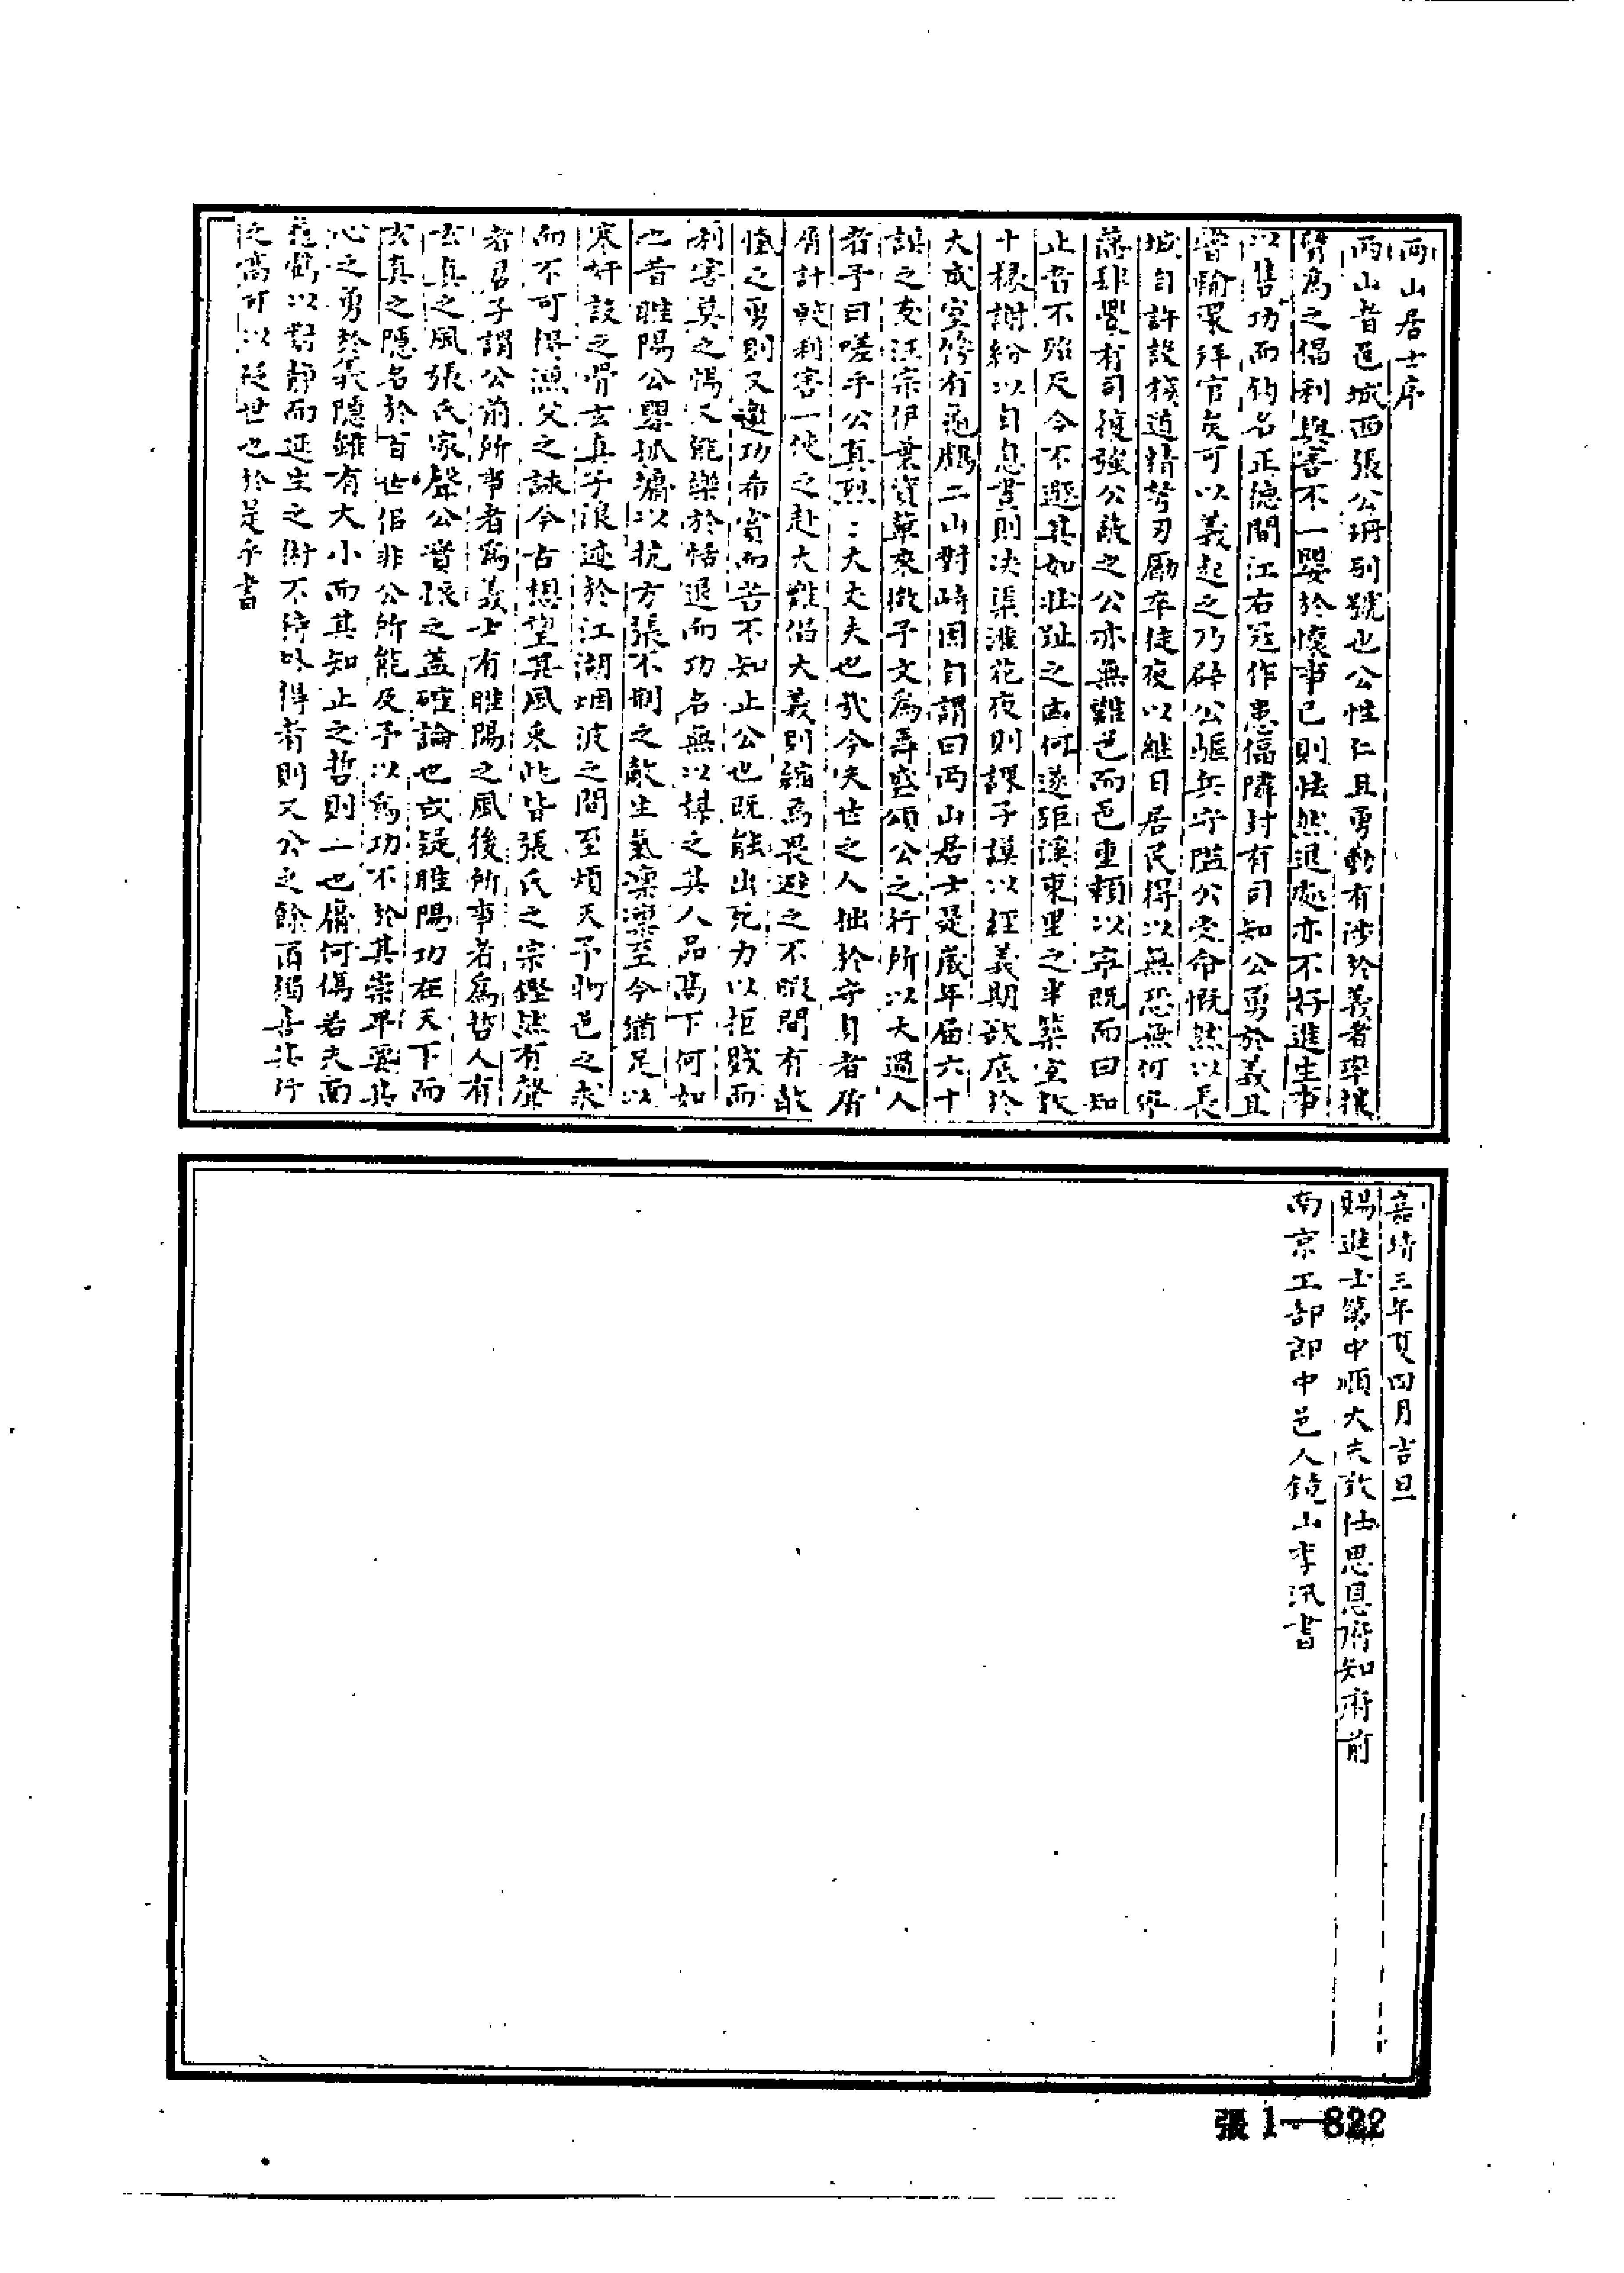 西山居士序
西山者邑城西張公珊別號也公性仁且勇動有涉於義者率攘
臂為之倡利與害不一嬰於懷事已則怯然退處亦不好進生事
以售功而釣名正德間江右寇作患偪隣封有司知公勇於義且
嘗輸粟拜官矣可以義起之乃辟公驅兵守隘公受命慨然以長
城自許設棧道精弩刃勵卒徒夜以継日居民得以無恐無何
有司復強公公亦無難色而邑重賴以寧既而曰知
止者不殆尺今不退其如壯趾之凶何遂距溪東里之半築室
十楹謝紛以自息晝則決渠灌花夜則課子謨以経義期欲底於
大成室傍有龜鶴二山對峙因自謂曰西山居士是歲年届六十
謨之友汪宗伊葉資草來徵予文為壽盛頌公之行所以大過人
者予曰嗟乎公真烈：大丈夫也哉今夫世之人拙於守身者屑
屑計較利害一使之赴大難倡大義則縮焉畏避之不暇間有敢
愾之勇則又邀功希賞而苦不知止公也既能出死力以拒賊而
利害莫之惕又能樂於恬退而功名無以媒之其人品高下何如
也昔睢陽公嬰孤墉以抗方張不制之敵生氣凜凜至今猶足以
寒奸諛之骨玄真子浪迹於江湖烟波之間至煩天子物色之求
而不可得漁父之詠今古想望其風采此皆張氏之宗鏗然有聲
者君子謂公前所事者為義士有睢陽之風後所事者為哲人有
玄真之風張氏家聲公實張之蓋確論也或疑睢陽功在天下而
玄真之隱名於百世佀非公所能及予以為功不於其崇卑要其
心之勇於義隱雖有大小而其知止之哲則一也庸何傷若夫面
龜鶴以對静而延生之術不待外得者則又公之餘而獨善其行
之高可以延世也於是乎書
嘉靖三年夏四月吉旦
賜進士第中順大夫致仕思恩府知府前
南京工部郎中邑人鏡山李汛書
張 1—822